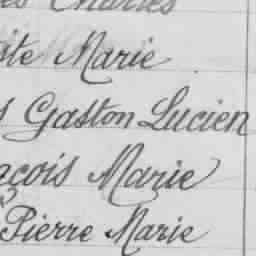 Charles
Marie
Gaston Lucien
Marie
Pierre Marie